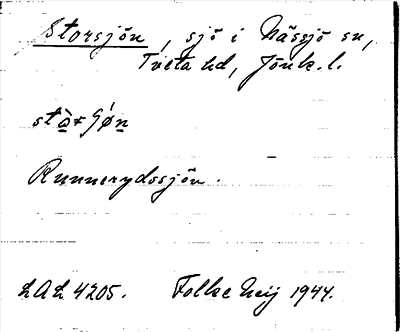 Storsjön, sjö i Nässjö sn,
Tveta hd, Jönk. l.
Runnerydssjön.
LAL 4205. Folke Heij 1944.